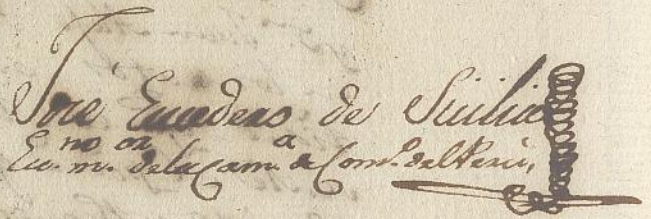 José Escudero de Sicilia
Esno. mor. de la Cama. de Como. del Perú,